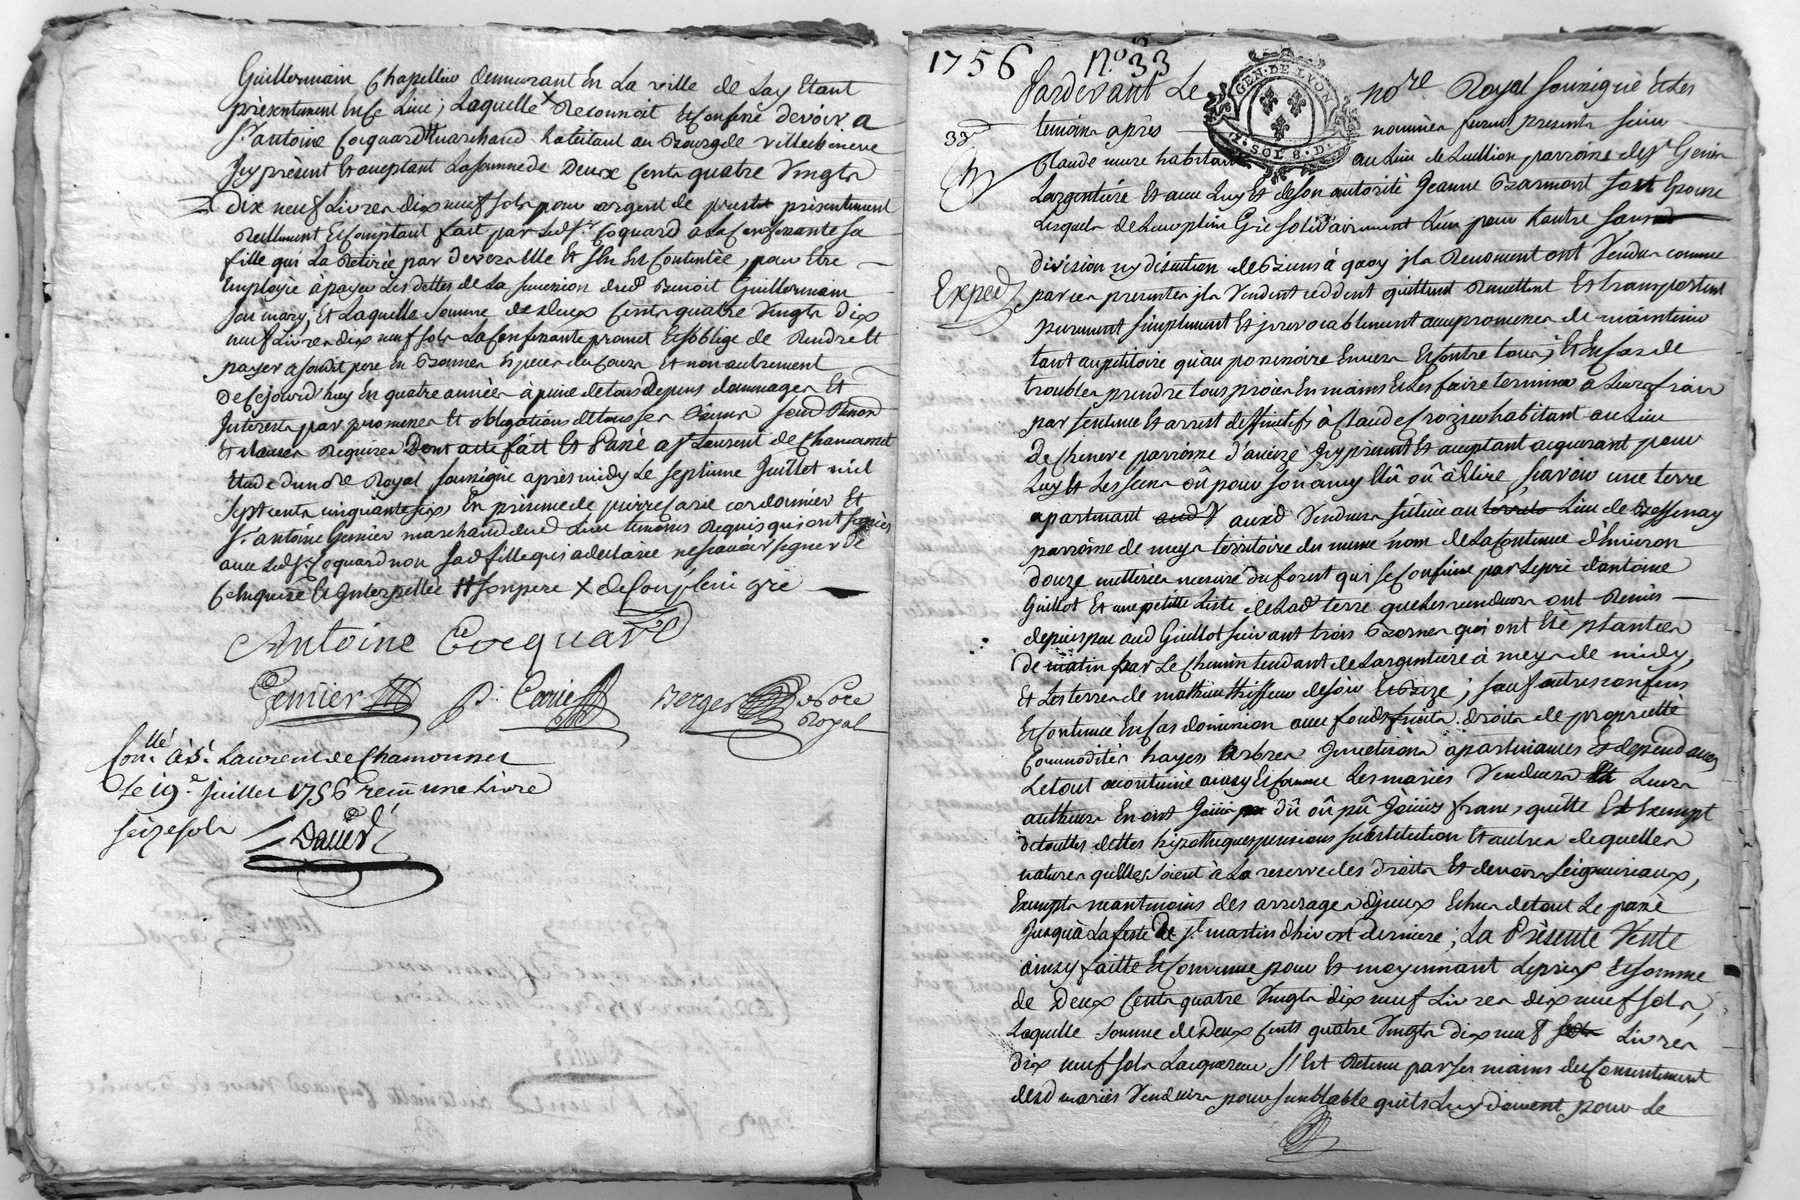 Guillermain Chapellier demeurant En La ville de Lay Etant
présentement En ce Lieu; Laquelle Reconnoit Et Confesse devoir a
Sr. antoine Cocquard marchand habitant au Bourg de Villechenève
Icy présent Et acceptant La Somme de Deux Cents quatre Vingts
Dix neuf Livres dix neuf sols pour argent de prest présentement
Réellement Et Comptant fait par Led. Sr. Coquard a La Confessante sa
fille qui La Retirée par devers Elle Et s'En Est Contentée, pour Etre
Employé à payer Les dettes de La succession dud. Benoit Guillermain
son mary, Et Laquelle Somme de Deux Cents quatre Vingts dix
neuf Livres dix neuf sols La Confessante promet Et s'oblige de Rendre Et
payer a sondit pere En Bonnes Espèces du Cours Et non autrement
De Cejourd'huy En quatre années à peine de tous depens dommages Et
Interests par promesses Et obligations de tous ses Biens soumd. Renon.
Et clauses Requises Dont acte fait Et Passé a St. Laurent de Chamousset
Etude du no.re Royal soussigné après midy Le septième Juillet mil
sept cents cinquante six En présence de pierre Carie cordonnier Et
Sr. antoine Genier marchand dud. Lieu temoins Requis qui ont signés
avec Led. Sr. Coquard non Lad. fille qui a declarée ne sçavoir signer de
Ce Enquise Et Interpellée # son pere X de son plein gré
Antoine Cocquard
Genier P. Carie Berger No.re
Royal
Con.llé à St. Laurent de Chamousset
Le 19e. Juillet 1756 receu une Livre
seize sols
David
1756 No. 33
GEN. DE LYON
SOL 8. D.
Pardevant Le no.re Royal soussigné Et Les
33
temoins après nommés furent presents sieur
Claude mure habitant au Lieu de Luillion parroisse de St. Genis
Largentière Et avec Luy Et de son autorité Jeanne Barmont son Epouse
Lesquels de Leur plein Gré solidairement L'un pour L'autre sans
division ny discution de Biens à quoy ils Renoncent ont Vendu comme
Exped.
par ces presentes ils Vendent cèddent quittent Remettent Et transportent
purement simplement Et irrevocablement avec promesses de maintenir
tant au petitoire qu'au possessoire Envers Et Contre tous; Et En cas de
troubles prendre tous procès En mains Et Les faire terminer à Leurs frais
par sentence Et arrest deffinitifs à Claude Crozier habitant au Lieu
De Cheneve parroisse d'aveize Icy présent Et acceptant acquerant pour
Luy Et Les siens où pour son amy Elû où à Elire, sçavoir une terre
apartenant aud. auxd. Vendeurs sittuée au Lieu de Bessenay
parroisse de meys territoire du meme nom de La Contenue d'Environ
douze metterées mesure du forest qui se Confine par Le pré d'antoine
Guillot Et une petitte Liste de Lad. terre que Les vendeurs ont Remis
depuis peu aud. Guillot suivant trois Bornes qui ont Eté plantées
de matin par Le Chemin tendant de Largentière à meys de midy,
Et Les terres de mathieu Thisseur de soir Et Bize; sauf autres confins
Et Contenue En sa dominion avec fonds fruits droits de proprietté
Commodités hayes Arbres Jonctions apartenances Et dependances
Le tout contenue ainsy Et Comme Les mariés Vendeurs Et Leurs
autheurs En ont Joüi dû où pû Joüirs franc, quitte Et Exempt
de touttes dettes hipotheques pensions substitution Et autres de quelles
natures qu'Elles soient à La reserve des droits Et devoirs seigneuriaux,
Exempts neantmoins des arrerages d'Jceux Echus de tout Le passé
Jusqu'à La feste De St. martin d'hiver derniere; La Présente Vente
ainsy faitte Et Convenue pour Et moyennant Le prix Et somme
de Deux Cents quatre Vingts dix neuf Livres dix neuf sols,
Laquelle somme de Deux Cents quatre Vingts dix neuf Livres
dix neuf sols L'acquereur s'Est Retenu par ses mains du Consentement
desd. mariés Vendeurs pour semblable qu'ils Luy doivent pour Le